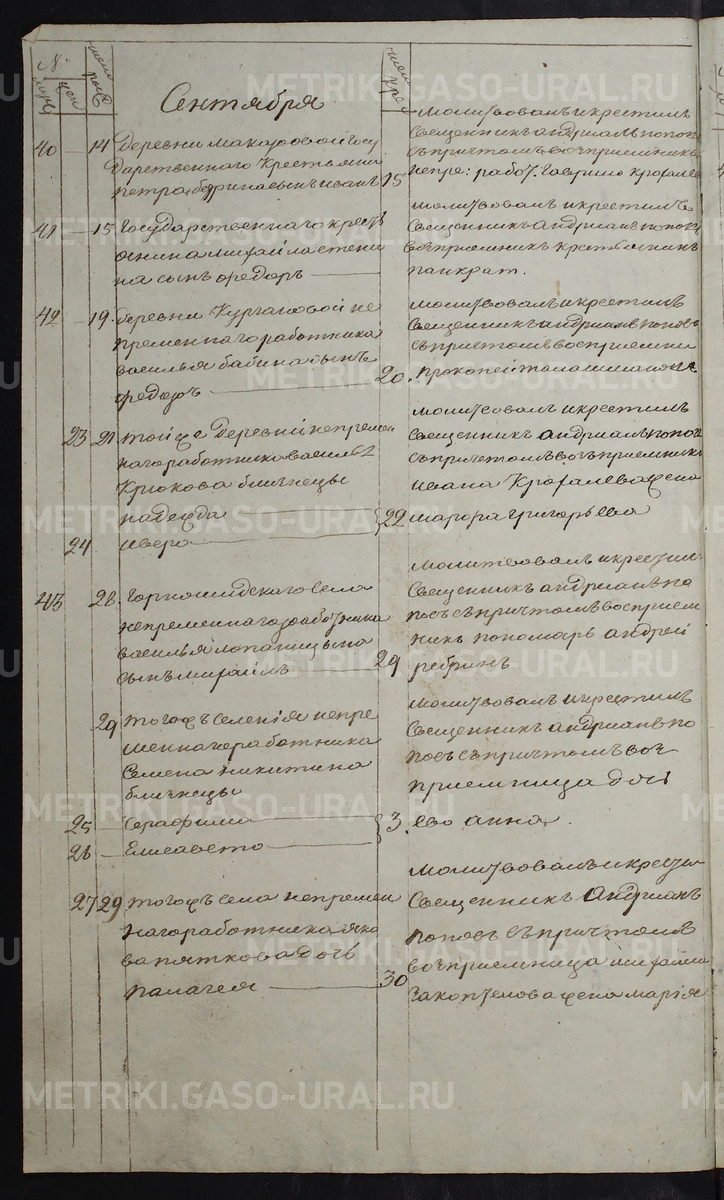 №
муж
жен
число
рож
число
кре
Сентября
40 14 Деревни макаровой Госу
дарственнаго Крестьяни
петра сынъ иванъ 15
молитвовалъ и крестилъ
Священникъ андрианъ попов
съ причтомъ восприемник
непре: рабо: Гаврило
41 15 Государственнаго кресть
янина михайла степи
на сынъ федоръ
молитвовалъ и крестилъ
Священникъ андрианъ попов
восприемникъ крестьянинъ
панкрат.
42 19 деревни Кургановой не
пременнаго работника
василья бабина сынъ
федоръ 20
молитвовалъ и крестилъ
Священникъ андрианъ попов
съ причтомъ восприемни
прокопей
23 21 той же Деревни непремен
наго работника василья
Крюкова близнецы
надежда
24 и вера 22
молитвовалъ и крестилъ
Священникъ андрианъ попов
съ причтомъ восприемники
ивана жена
марфа григорьева
43 28 Горнощидскаго села
непременнаго работника
василья лопаницына
сынъ михаилъ 29
молитвовалъ и крестил
Священникъ андрианъ по
повъ съ причтомъ восприем
никъ пономарь андрей
ребринъ
29 тогожъ селения непре
меннаго работника
Семена никитина
близнецы
25 Серафима
26 Елисавета 3.
молитвовалъ и крестилъ
Священникъ андрианъ по
повъ съ причтомъ вос
приемница дочь
ево анна.
27 29 тогожъ села непремен
наго работника яко
ва пяткова дочь
палагея 30
молитвовалъ и крестил
Священникъ Андрианъ
поповъ съ причтомъ
восприемница
жена мария
METRIKI.GASO-URAL.RU